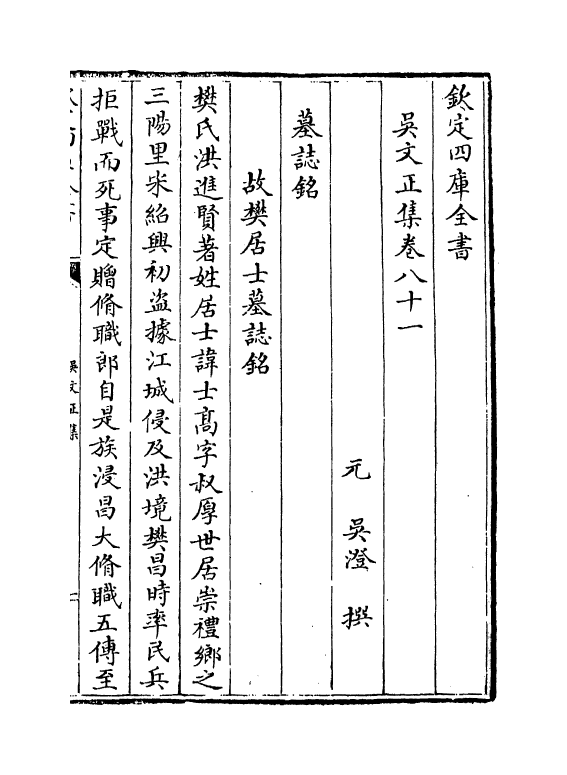 欽定四庫全書
吳文正集卷八十一
元 吳澄 撰
墓誌銘
故樊居士墓誌銘
樊氏洪進賢著姓居士諱士髙字叔厚世居崇禮鄉之
三陽里宋紹興初盜據江城侵及洪境樊昌時率民兵
拒戰而死事定贈脩職郎自是族浸昌大脩職五傳至
吳文正集